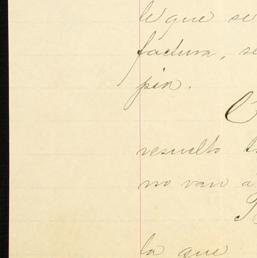 le que se
factura, se
pia.
resuelto
no van a
la que